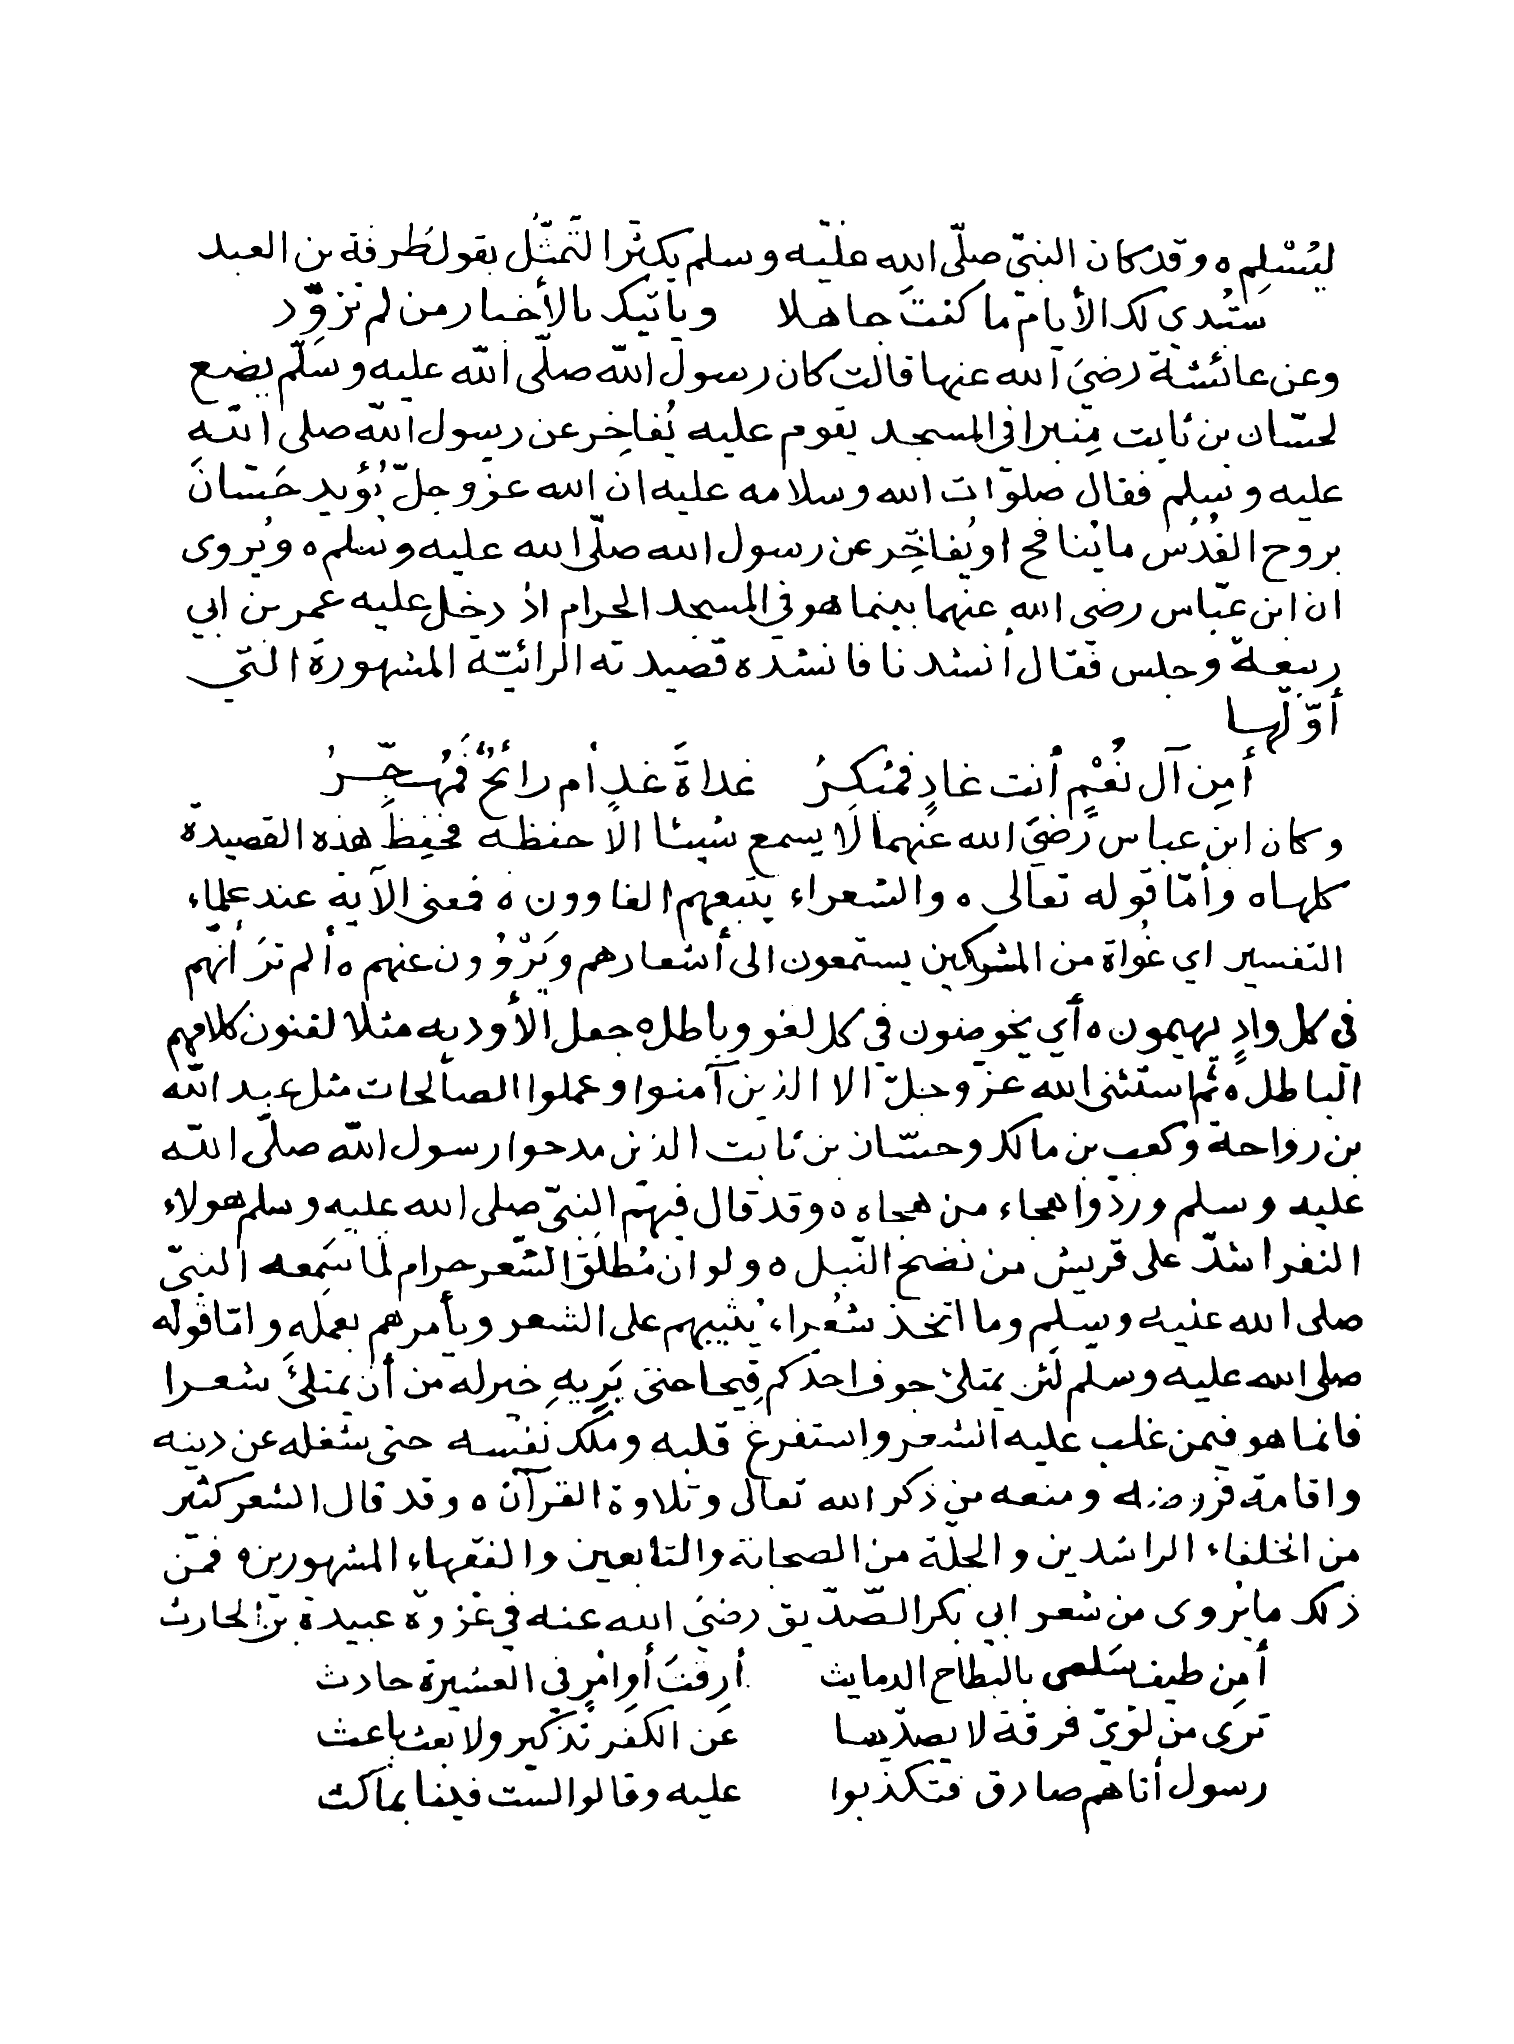 ليُسْلِم ه وقد كان النبيّ صلّى الله عليه وسلم يكثر التَّمثُّل بقول طَرفة بن العبد
ستُبدي لك الأيام ما كنتَ جاهلا ويأتيك بالأخبار من لم تزوِّد
وعن عائشة رضيَ الله عنها قالت كان رسول الله صلّى الله عليه وسلّم يضع
لحسّان بن ثابت مِنبرا في المسجد يقوم عليه يُفاخِر عن رسول الله صلى الله
عليه وسلم فقال صلوات الله وسلامه عليه ان الله عزّ وجلّ يُؤيد حَسّانَ
بروح القُدُس ما يُنافح او يُفاخِر عن رسول الله صلّى الله عليه وسلم ه ويُروى
ان ابن عبّاس رضى الله عنهما بينما هو في المسجد الحرام اذ دخل عليه عمر بن ابي
ربيعة وجلس فقال أنشدنا فانشده قصيدته الرائيّة المشهورة التي
أوّلها
أَمِن آل نُعْمٍ أنت غادٍ فمُبكِرُ غداةَ غدٍ أم رائحٌ فَمُهجِّرُ
وكان ابن عباس رضيَ الله عنهما لا يسمع شيئا الا حفظه فحفِظ هذه القصيدة
كلها ه وأمّا قوله تعالى ه والشعراء يتبعهم الغاوون ه فمعنى الآية عند علماء
التفسير اي غُواة من المشركين يستمعون الى أشعارهم ويَرْوُون عنهم ه ألم ترَ أنّهم
في كل وادٍ يهيمون ه أي يخوضون في كل لغو وباطل ه جعل الأوديه مثلا لفنون كلامهم
الباطل ه ثم استثنى الله عزّ وجلّ الا الذين آمنوا وعملوا الصالحات مثل عبد الله
بن رواحة وكعب بن مالك وحسّان بن ثابت الذين مدحوا رسول الله صلّى الله
عليه وسلم وردّوا هجاء من هجاه ه وقد قال فيهم النبيّ صلى الله عليه وسلم هولاء
النفر اشدّ على قريش من نضح النّبل ه ولو ان مُطلَق الشّعر حرام لما سَمِعه النبيّ
صلى الله عليه وسلم وما اتخذ شُعراء يُثيبهم على الشعر ويأمرهم بعمله وامّا قوله
صلى الله عليه وسلم لئن يمتلئ جوف احدكم قيحا حتى يَرِيهِ خير له من أن يمتلئَ شعرا
فانما هو فيمن غلب عليه الشعر واستفرغ قلبه وملك نفسه حتى شغله عن دينه
واقامة فروضه ومنعه من ذكر الله تعالى وتلاوة القرآن ه وقد قال الشعر كثير
من الخلفاء الراشدين والجلّة من الصحابة والتابعين والفقهاء المشهورين ه فمن
ذلك ما يُروى من شعر ابي بكر الصّدّيق رضيَ الله عنه في غزوة عبيدة بن الحارث
أمِن طيف سَلمى بالبطاح الدمايث أرقتَ أوامْرٍ في العشيرة حادث
ترَى من لؤيّ فرقة لا يصدّها عَن الكفر تذكير ولا بعث باعث
رسول أتاهم صادق فتكذّبوا عليه وقالوا لست فينا بماكث